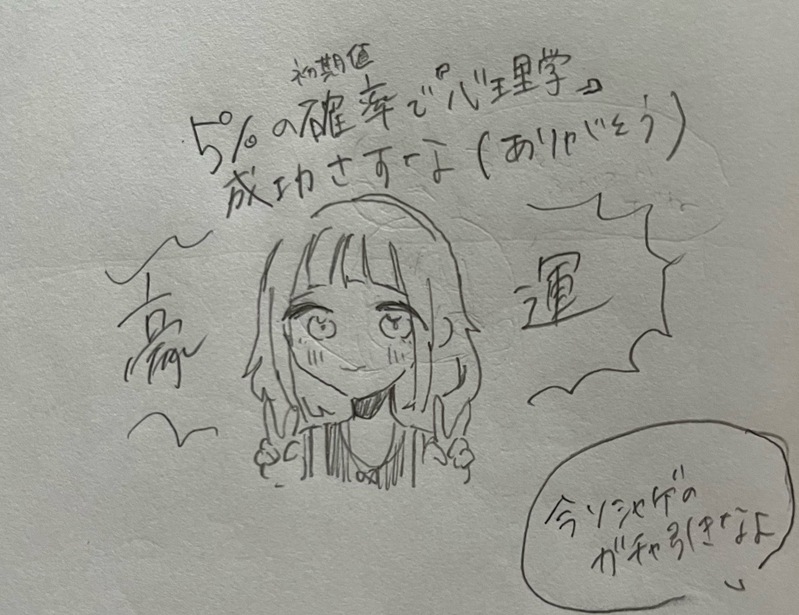 初期値
5%の確率で『心理学』
成功さすなよ(ありがとう)
豪
運
今ソシャゲの
ガチャ引きなよ